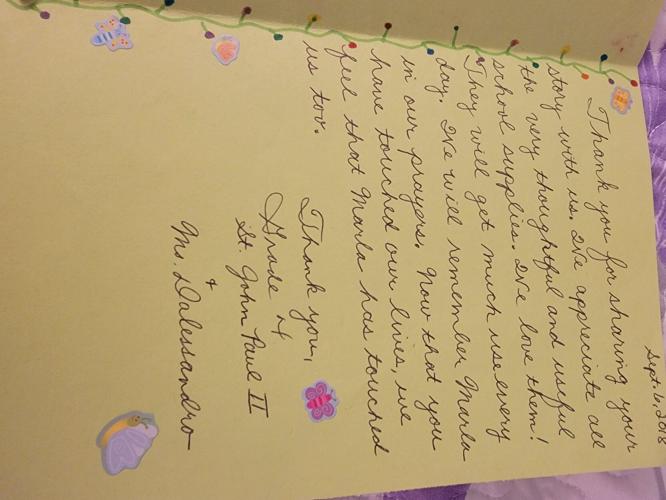 Sept. 6, 2018
Thank you for sharing your
story with us. We appreciate all
the very thoughtful and useful
school supplies. We love them!
They will get much use every
day. We will remember Marla
in our prayers. Now that you
have touched our lives, we
feel that Marla has touched
us too.
Thank you,
Grade 4
St. John Paul II
+
Ms. Dalessandro